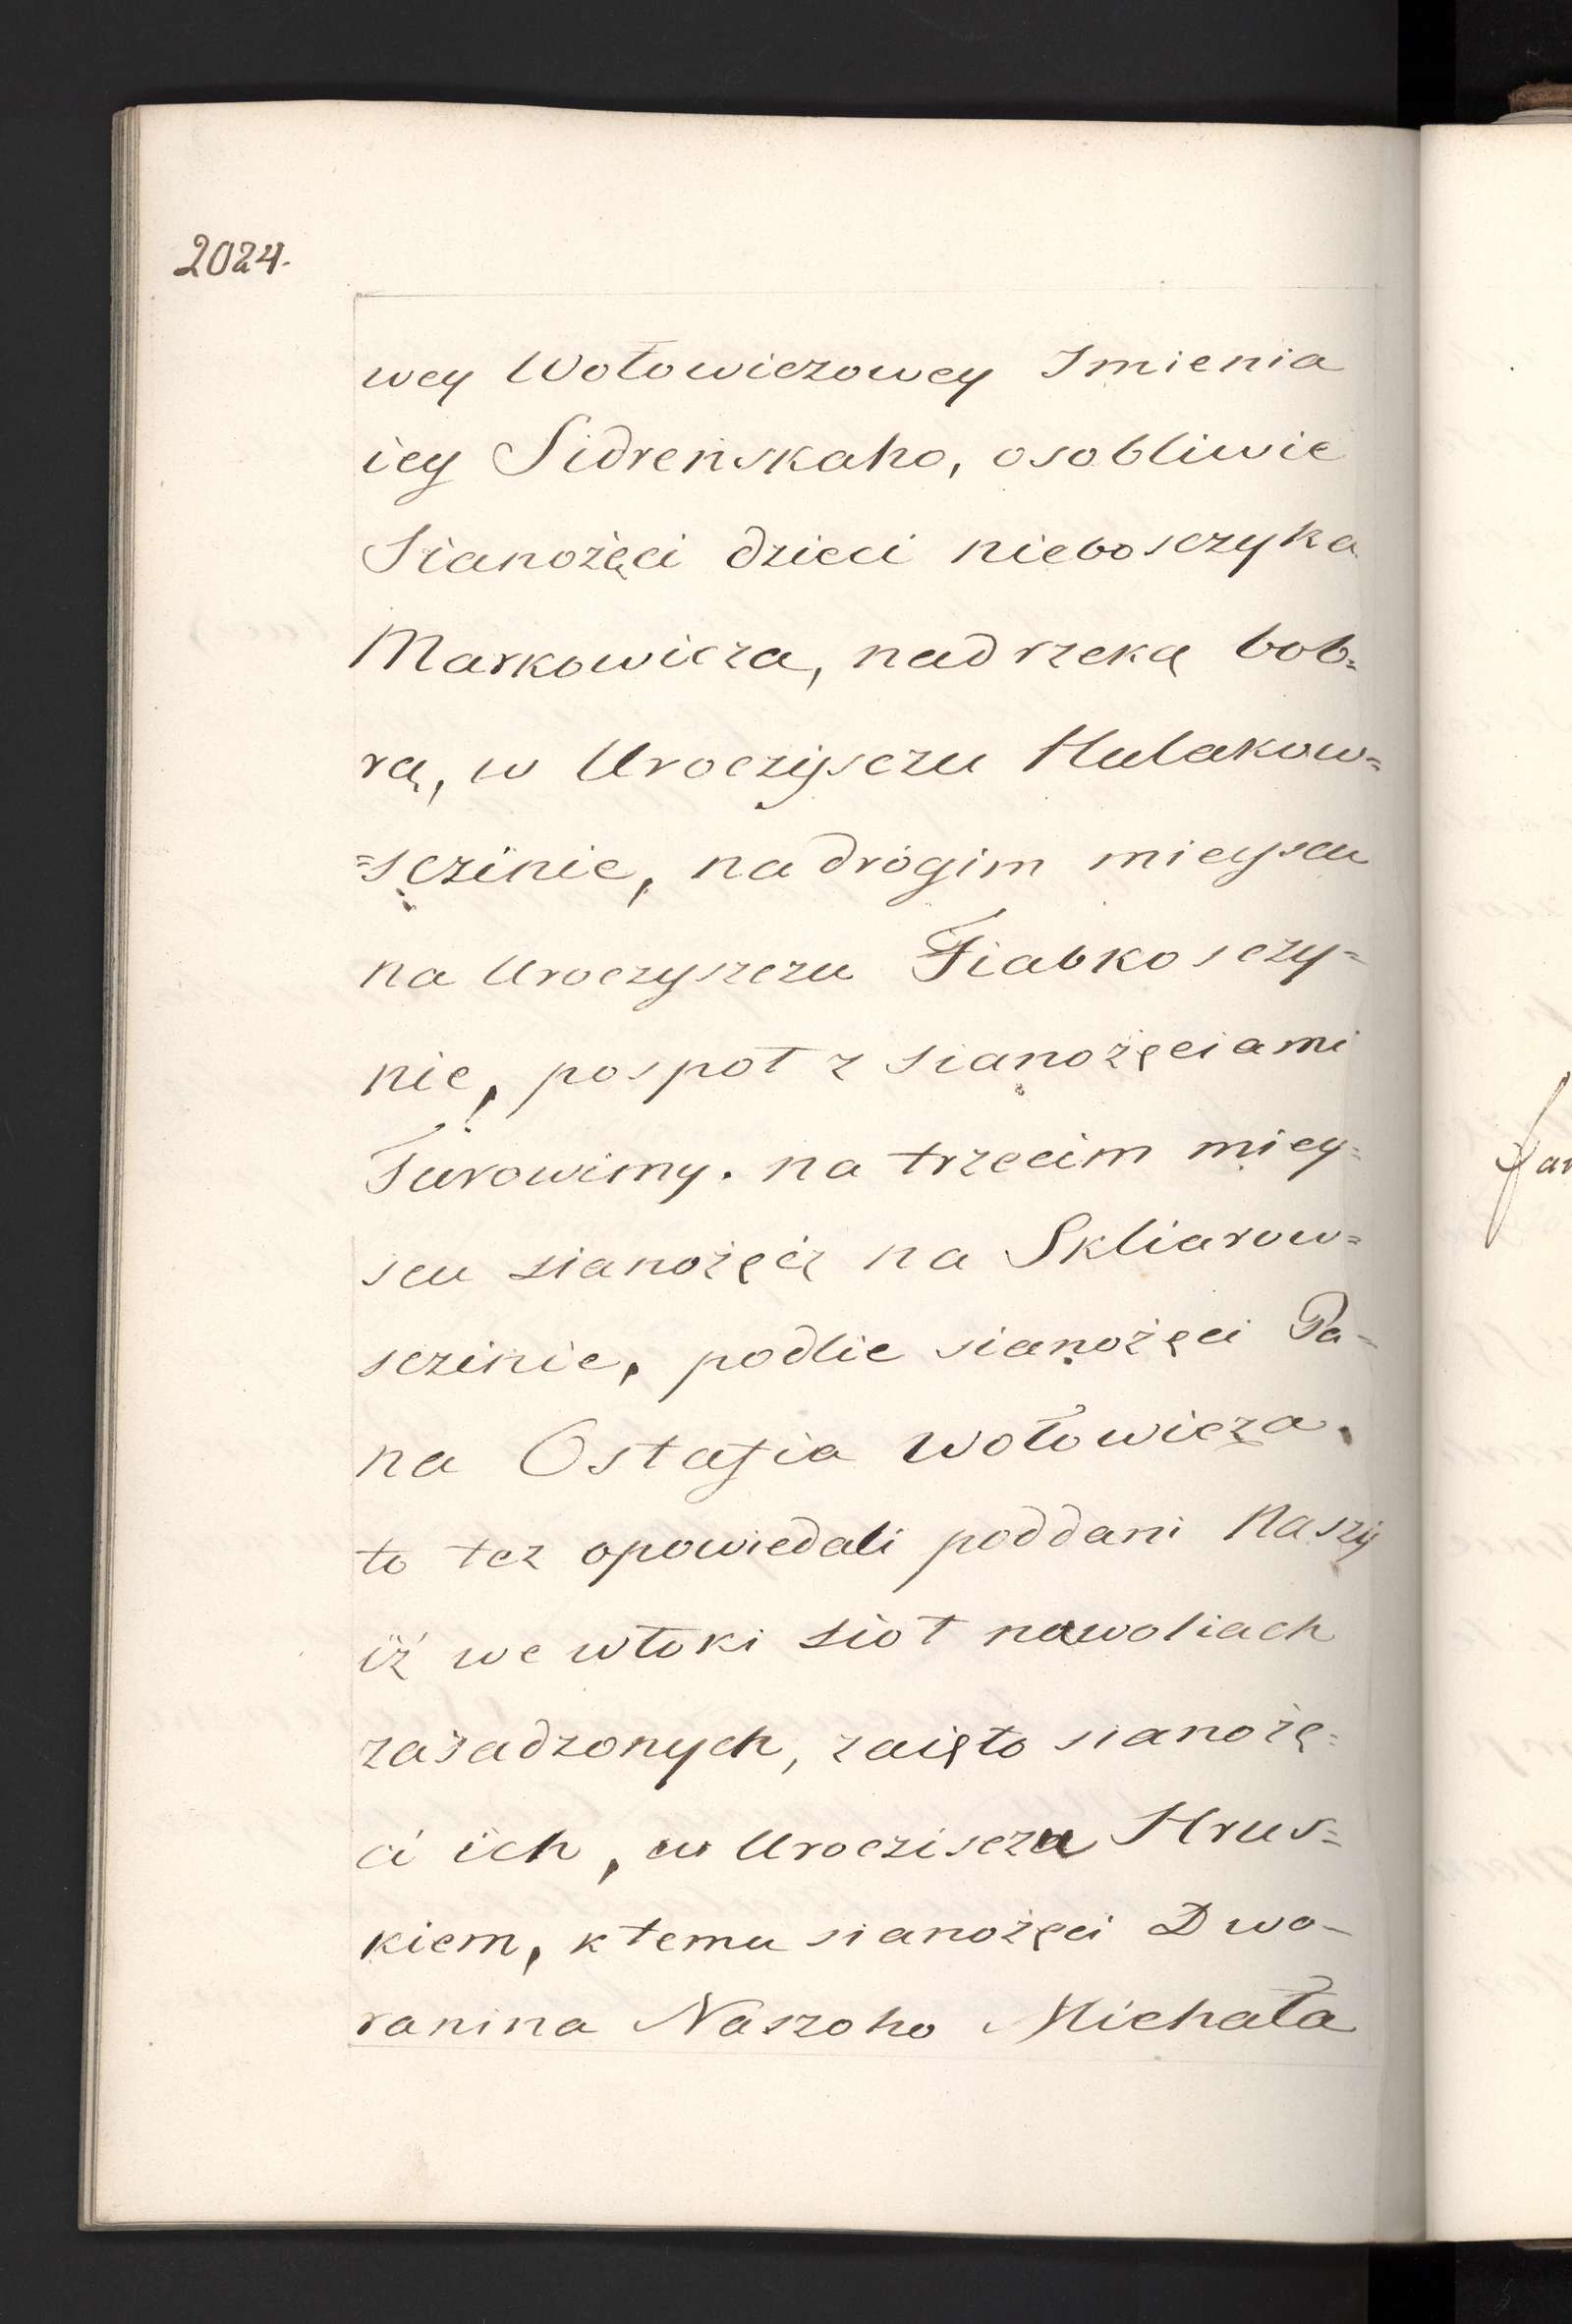 2024.
wey Wołowiczowey Imienia
iey Sidreńskaho, osobliwie
Sianożęci dzieci nieboszczyka
Markowicza, nad rzeką bob=
rą, w Uroczysczu Hulakow=
=sczinie, na drógim mieyscu
na Uroczyszczu Fiabkosczy=
nie, pospoł z sianożęciami
Turowimy. na trzecim miey=
scu sianożęcz na Skliarow=
sczinie, podlie sianożęci Pa-
na Ostafia Wołowicza.
to tez opowiedali poddani Naszy
iż we włoki siół nawoliach
zasadzonych, zaięto sianożę=
ci ich, w Urocziscza Hrus=
kiem, k temu sianożęci Dwo-
ranina Naszoho Michała